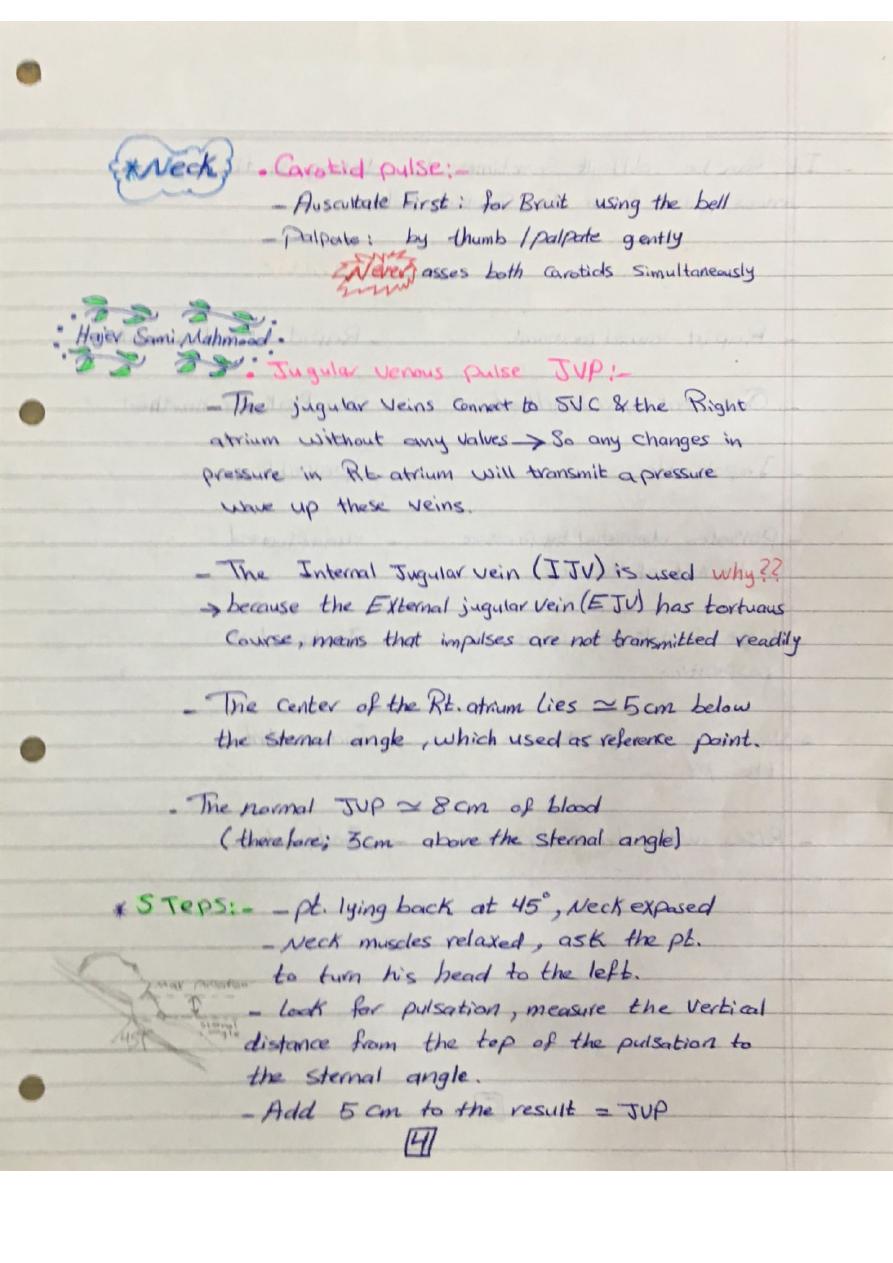 *Neck
• Carotid pulse:-
- Auscultate First : for Bruit using the bell
- Palpate : by thumb / palpate gently
Never asses both carotids simultaneously
Hajer Sami Mahmood.
• Jugular venous pulse JVP:-
- The jugular veins connect to SVC & the Right
atrium without any valves → So any changes in
pressure in Rt. atrium will transmit a pressure
wave up these veins.
- The Internal Jugular vein (IJV) is used why??
→ because the External jugular vein (EJV) has tortuous
Course, means that impulses are not transmitted readily
- The center of the Rt. atrium lies ≃ 5 cm below
the sternal angle, which used as reference point.
. The normal JVP ≃ 8 cm of blood
(therefore; 3cm above the sternal angle)
* STeps:- - pt. lying back at 45°, Neck exposed
- Neck muscles relaxed, ask the pt.
to turn his head to the left.
- look for pulsation, measure the vertical
distance from the top of the pulsation to
the sternal angle.
- Add 5 cm to the result = JVP
sternal
angle
45°
4